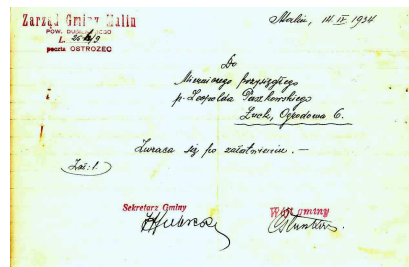 Zarząd Gminy Malin
POW. DUBIEŃSKIEGO
L.
poczta OSTROŻEC
Malin, 14.IV.1934
Do
Mierniczego Przysięgłego
p. Leopolda Paszkowskiego
Łuck, Ogrodowa 6.
Zwraca się po załatwieniu. —
Zał: 1.
Sekretarz Gminy
Wójt gminy